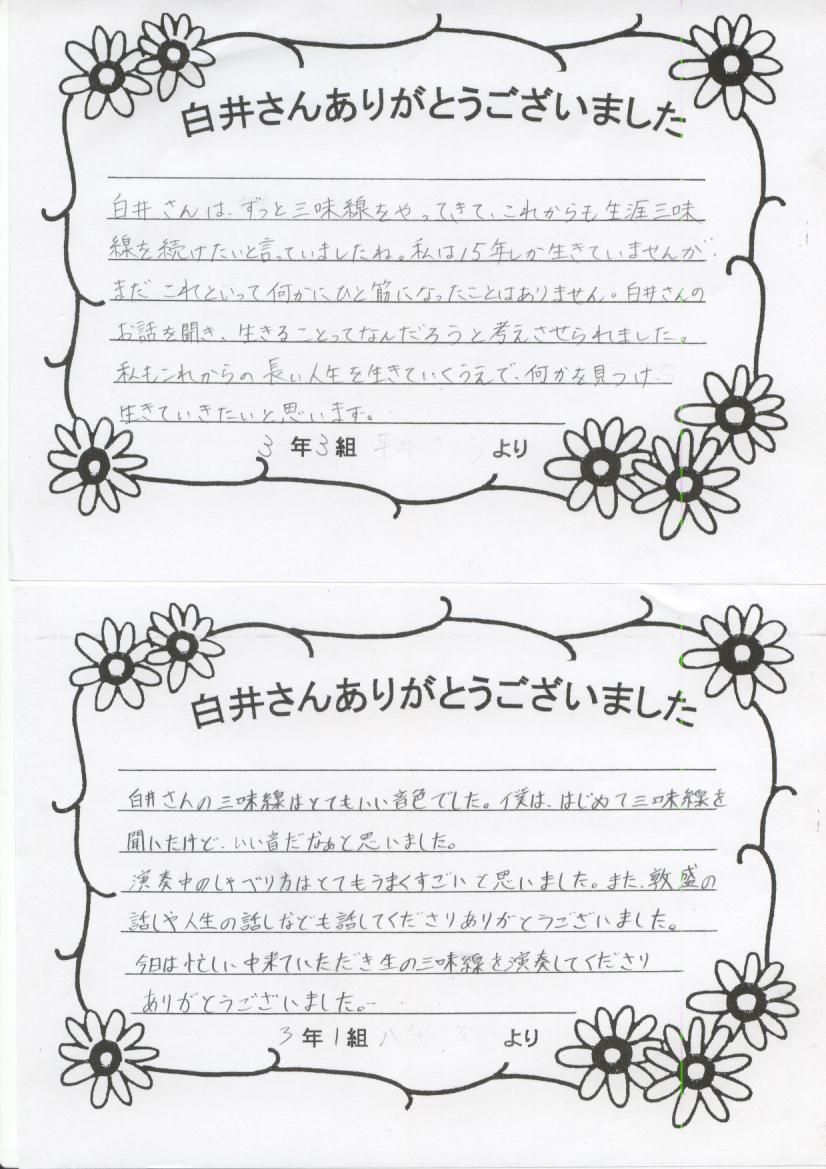 白井さんありがとうございました
白井さんは、ずっと三味線をやってきて、これからも生涯三味
線を続けたいと言っていましたね。私は15年しか生きていませんが、
まだこれといって何かにひと筋になったことはありません。白井さんの
お話を聞き、生きることってなんだろうと考えさせられました。
私もこれからの長い人生を生きていくうえで、何かを見つけ
生きていきたいと思います。
3年3組 より
白井さんありがとうございました
白井さんの三味線はとてもいい音色でした。僕は、はじめて三味線を
聞いたけど、いい音だなぁと思いました。
演奏中のしゃべり方はとてもうまくすごいと思いました。また、敦盛の
話しや人生の話しなども話してくださりありがとうございました。
今日は忙しい中来ていただき生の三味線を演奏してくださり
ありがとうございました。
3年1組 より